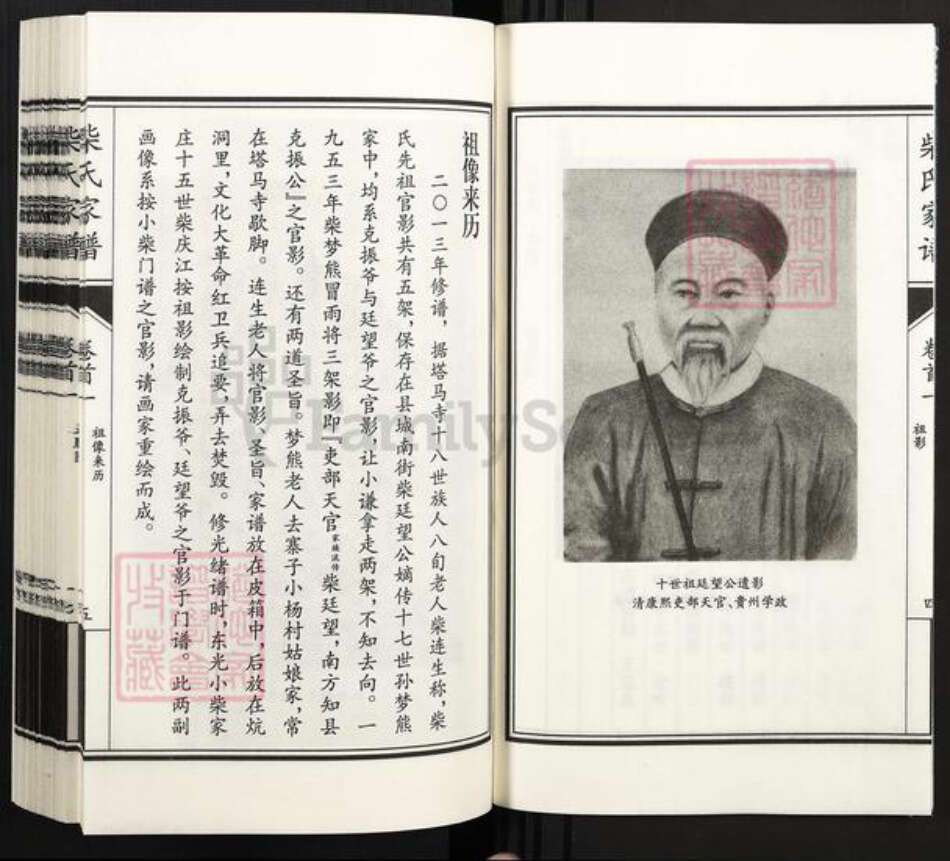 柴氏家谱
卷首一
祖影
四
十世祖廷望公遗影
清康熙吏部天官、贵州学政
祖像来历
二〇一三年修谱，据塔马寺十八世族人八旬老人柴连生称，柴
氏先祖官影共有五架，保存在县城南街柴廷望公嫡传十七世孙梦熊
家中，均系克振爷与廷望爷之官影，让小谦拿走两架，不知去向。一
九五三年柴梦熊冒雨将三架影即“吏部天官家族流传柴廷望，南方知县
克振公”之官影。还有两道圣旨。梦熊老人去寨子小杨村姑娘家，常
在塔马寺歇脚。连生老人将官影、圣旨、家谱放在皮箱中，后放在炕
洞里，文化大革命红卫兵追要，弄去焚毁。修光绪谱时，东光小柴家
庄十五世柴庆江按祖影绘制克振爷、廷望爷之官影于门谱。此两副
画像系按小柴门谱之官影，请画家重绘而成。
柴氏家谱
卷首一
祖像来历
五
FamilySe